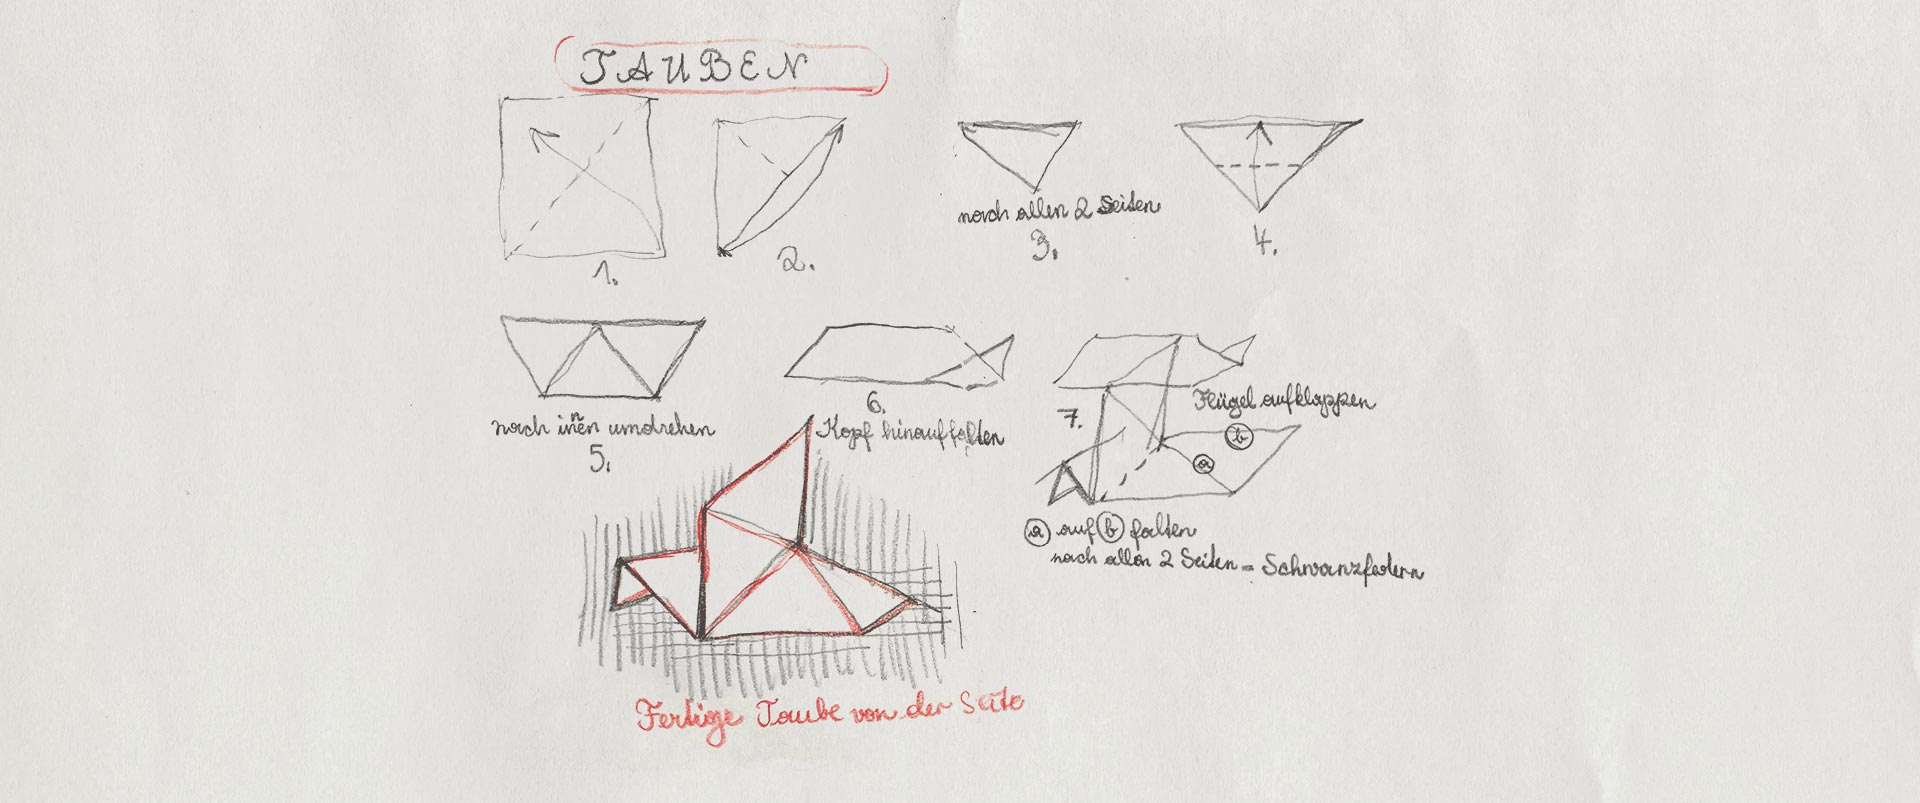 TAUBEN
1.
2.
nach allen 2 Seiten
3.
4.
nach innen umdrehen
5.
6.
Kopf hinauffalten
7.
Flügel aufklappen
b
a
a auf b falten
nach allen 2 Seiten = Schwanzfedern
Fertige Taube von der Seite